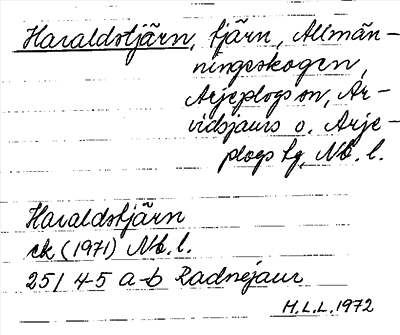 Haraldstjärn, tjärn, Allmän-
ningsskogen,
Arjeplogs sn, Ar-
vidsjaurs o. Arje-
plogs tg, Nb. l.
Haraldstjärn
ek (1971) Nb. l.
25I 4-5 a-b Radnejaur
H.L.L. 1972